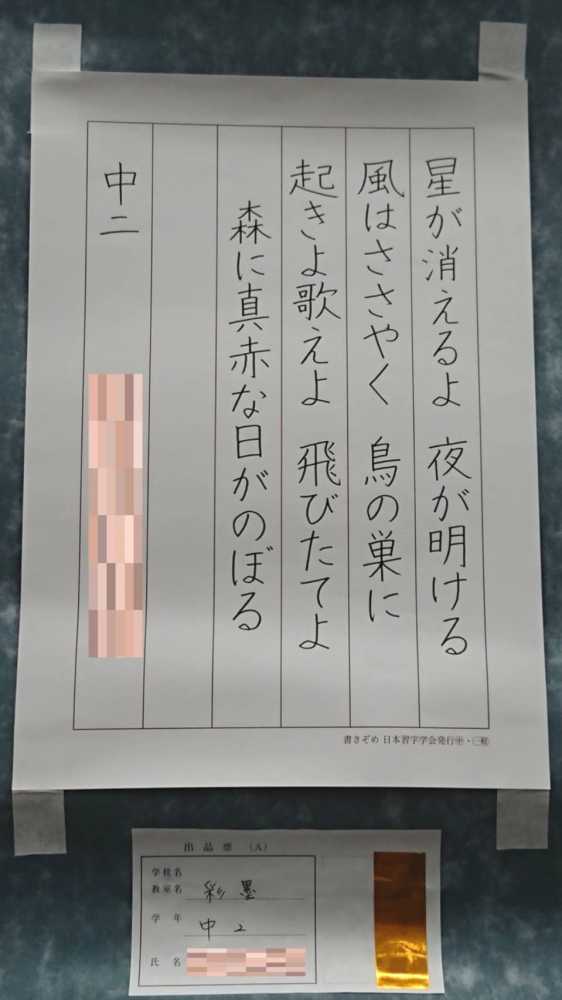 星が消えるよ 夜が明ける
風はささやく 鳥の巣に
起きよ歌えよ 飛びたてよ
森に真赤な日がのぼる
中二
書きぞめ 日本習字学会発行㊥・㊀般
出品票（A）
学校名
教室名 彩墨
学年 中2
氏名